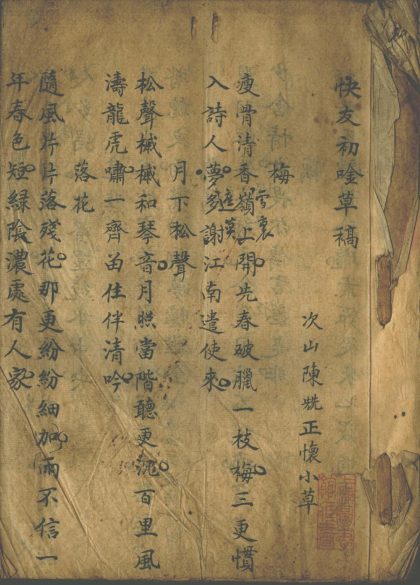 快友初唫草稿
次山陳正懷小草
梅
瘦骨清香嶺上開先春破臘一枝梅三更慣
雪裏
入詩人夢多謝江南遣使來
月下松聲
松聲槭槭和琴音月照當階聽更沈百里風
濤龍虎嘯一齊留住伴清吟
落花
隨風片片落殘花那更紛紛細加雨不信一
年春色短綠陰濃處有人家